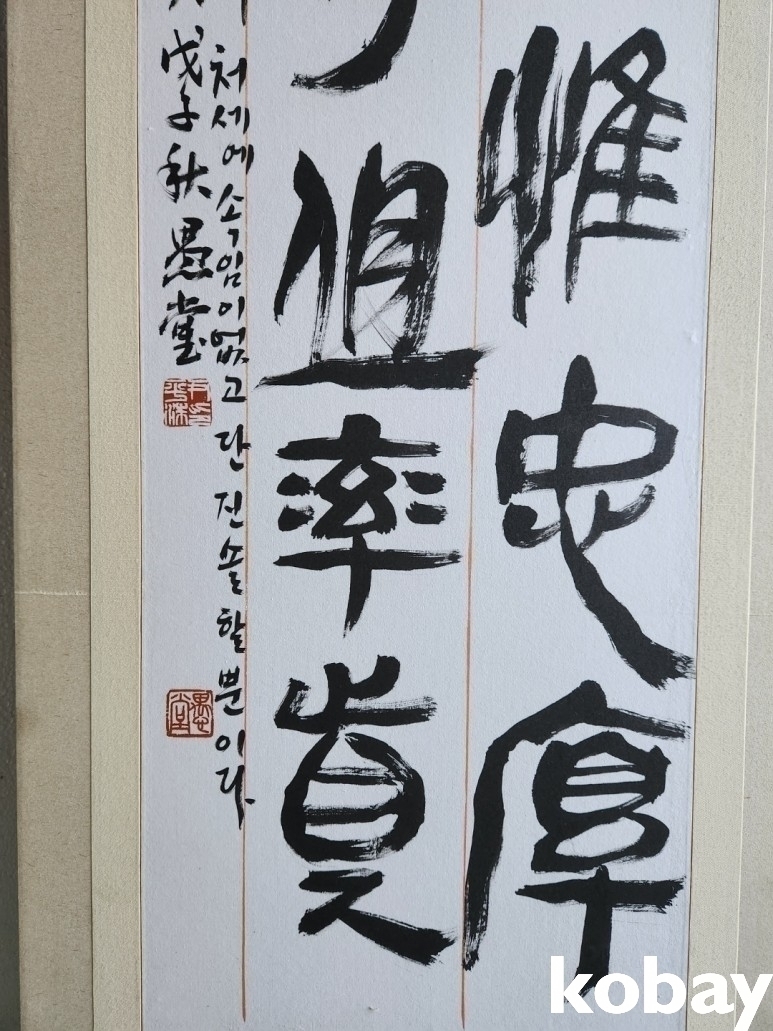 惟忠厚
但率真
처세에 속임이없고 단 진솔할 뿐이다
戊子秋 愚堂
愚堂
kobay